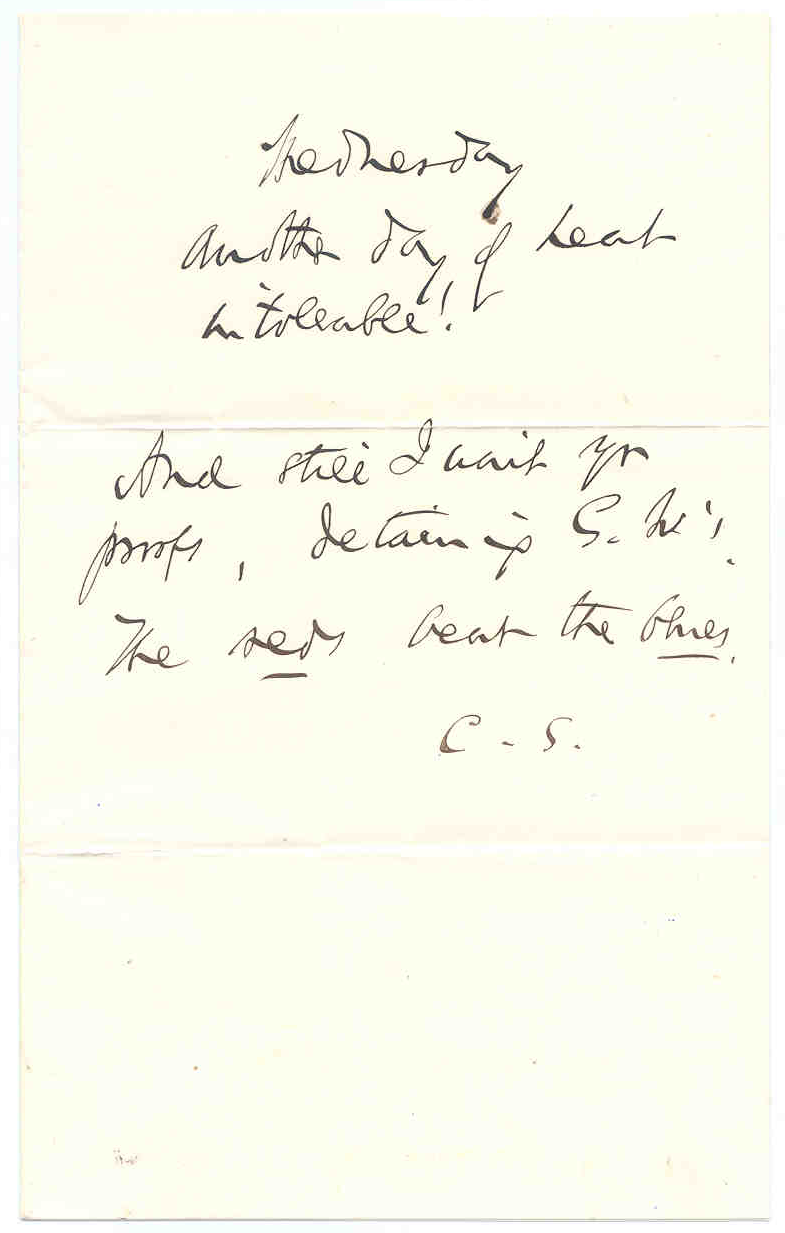 Wednesday
Another day of heat
intolerable!
And still I wait yr
proofs, detaining G. W's.
The reds beat the blues.
C. S.